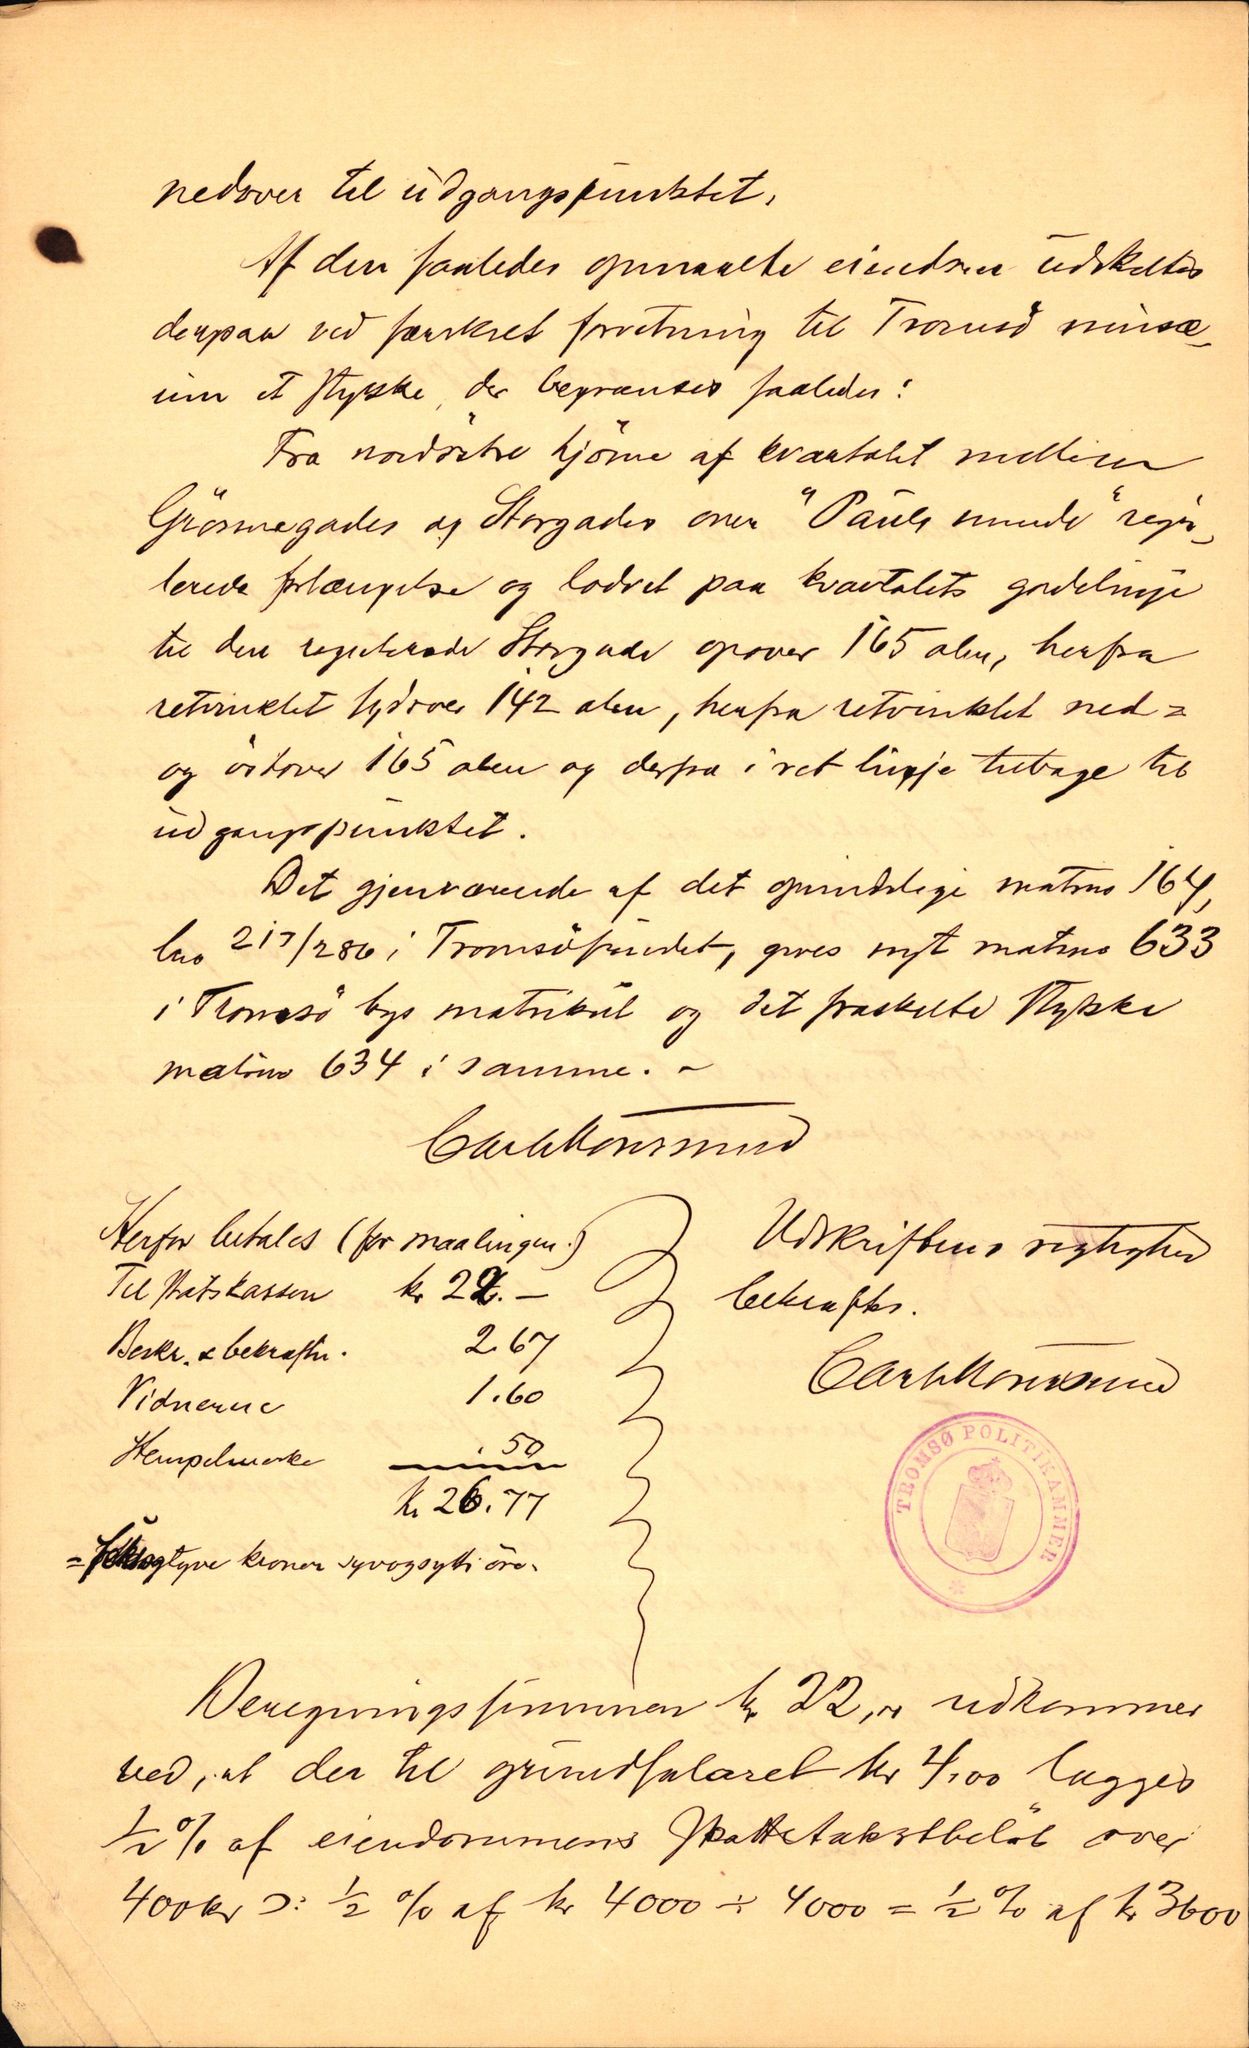 nedover til udgangspunktet.
Af den saaledes opmaalte eiendom udskiltes
derpaa ved særskilt forretning til Tromsø musæ-
um et stykke, der begrænses saaledes:
Fra nordøstre hjørne af kvartalet mellem
Grønnegades og Storgades over "Pauls minde" regu-
lerede forlængelse og lodret paa kvartalets gadelinje
til den regulerede Storgade opover 165 alen, herfra
retvinklet sydover 142 alen, herfra retvinklet ned=
og østover 165 alen og derfra i ret linje tilbage til
udgangspunktet.
Det gjenværende af det oprindelige matrno 164,
lno 217/286 i Tromsøsundet, gives nyt matrno 633
i Tromsø bys matrikul og det fraskilte stykke
matrno 634 i samme. -
Herfor betales (for maalingen.)
Til statskassen kr 22. —
Beskr. & bekræftn. 2.67
Vidnerne 1.60
Stempelmærke . 50
kr 26.77
= seksogtyve kroner syvogsytti øre.
Udskriftens rigtighed
bekræftes.
TROMSØ POLITIKAMMER
Beregningssummen kr 22,00 udkommer
ved, at der til grundsalæret kr 4,00 lægges
½ % af eiendommens skattetakstbeløb over
400 kr ɔ: ½ % af kr 4000 ÷ 4000 = ½ % af kr 3600